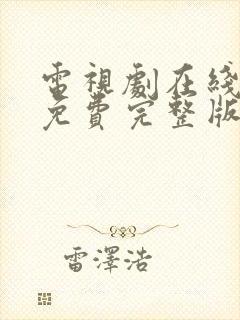 電視劇在綫
免費完整版
雷澤浩